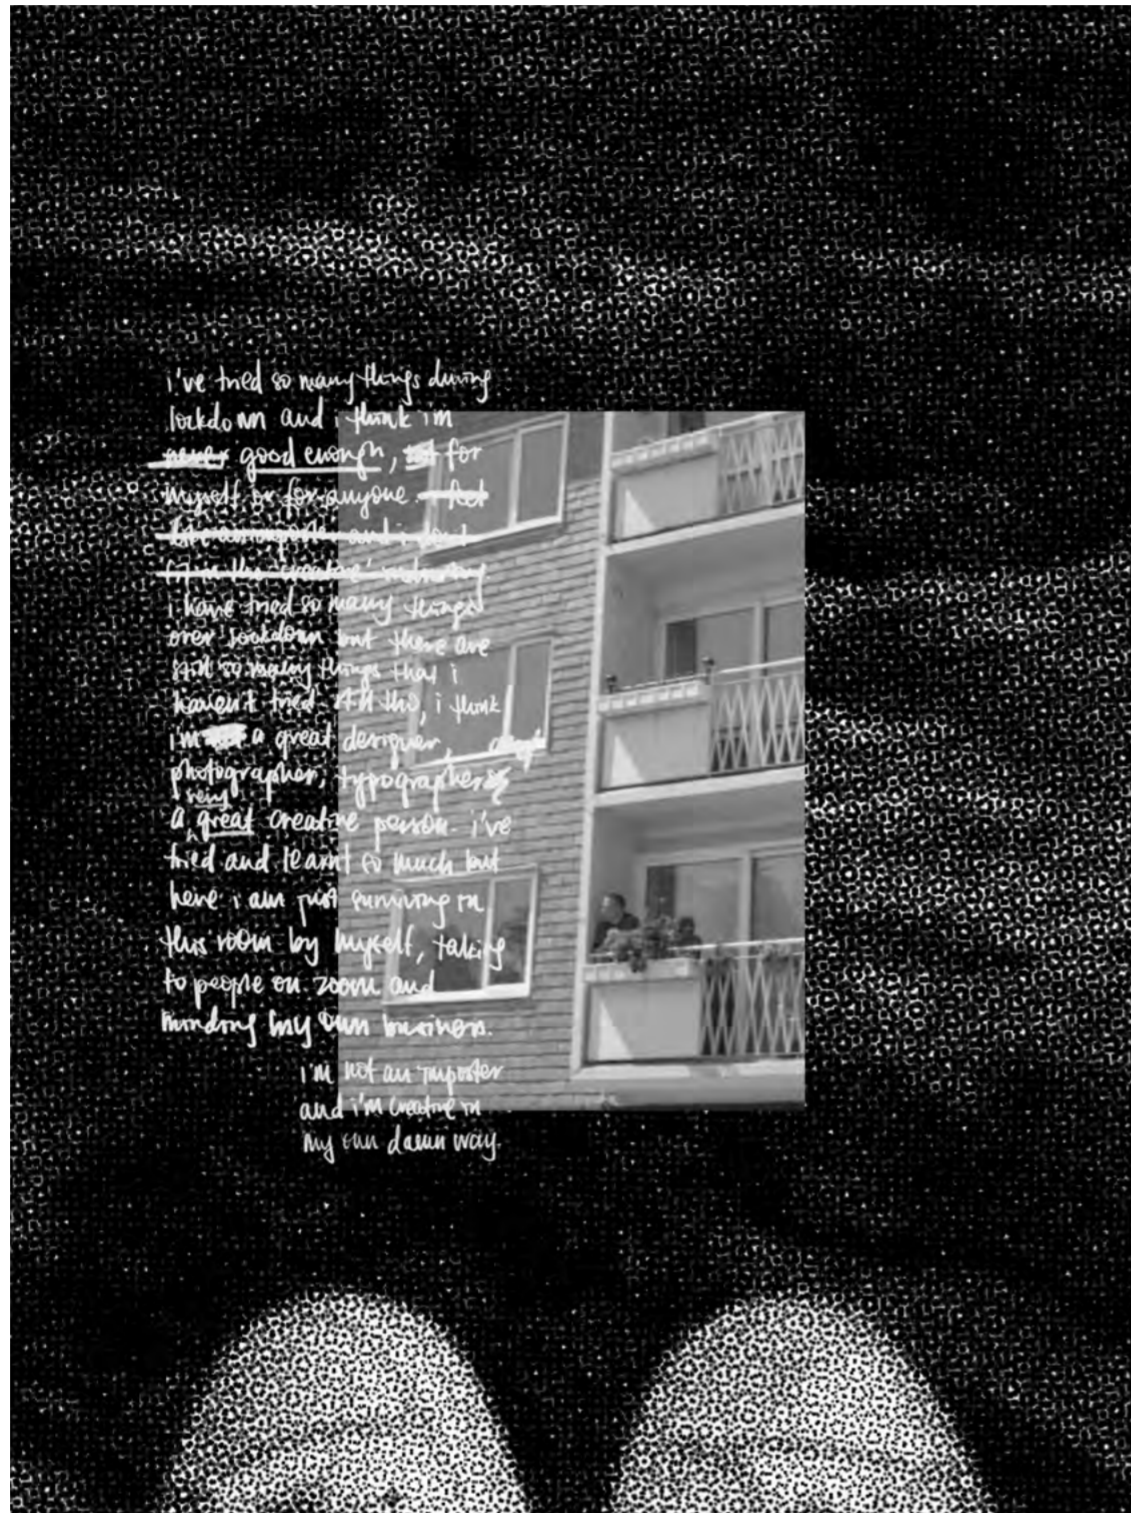 i've tried so many things during
lockdown and i think i'm
never good enough, for
myself or for anyone. feel
like an imposter and i don't
fit in the 'creative' industry.
i have tried so many things
over lockdown but there are
still so many things that i
haven't tried. still tho, i think
i'm a great designer,
photographer, typographer &
a very great creative person. i've
tried and learnt so much but
here i am just surviving in
this room by myself, talking
to people on zoom and
minding my own business.
i'm not an imposter
and i'm creative in
my own damn way.